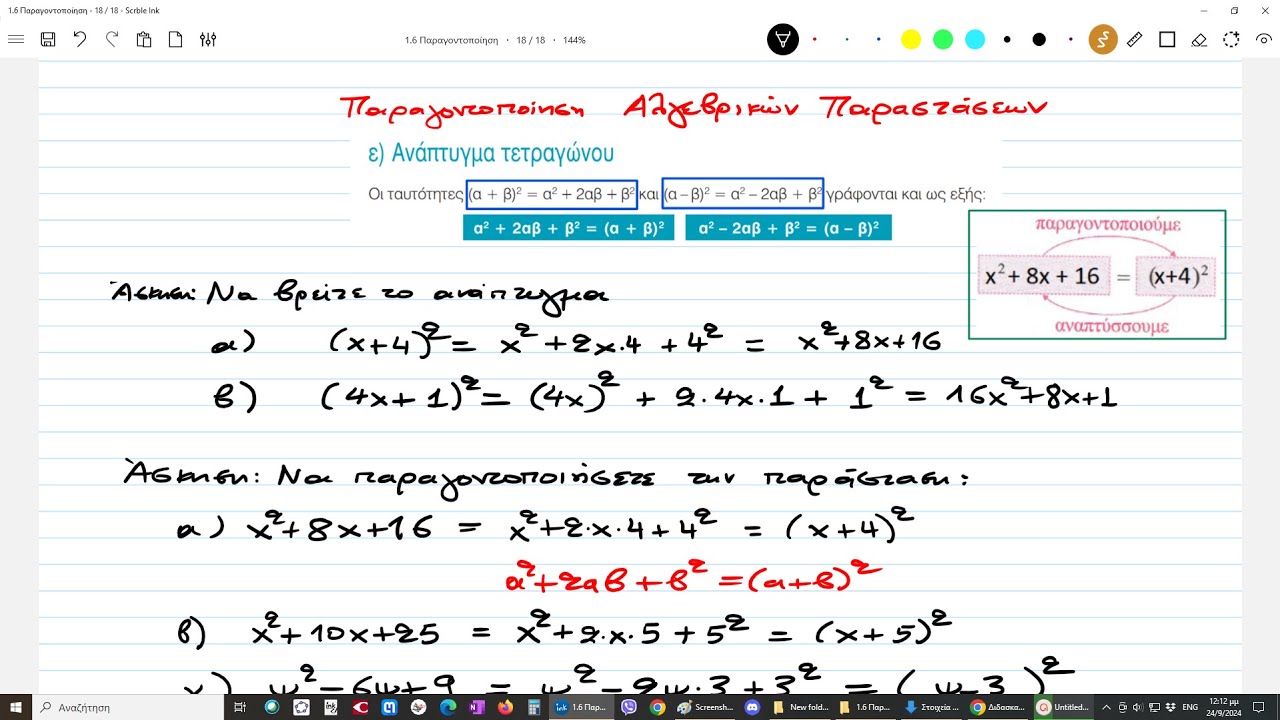 1.6 Παραγοντοποίηση - 18 / 18 - Scrble Ink
1.6 Παραγοντοποίηση · 18 / 18 · 144%
Παραγοντοποίηση Αλγεβρικών Παραστάσεων
ε) Ανάπτυγμα τετραγώνου
Οι ταυτότητες (α + β)² = α² + 2αβ + β² και (α – β)² = α² – 2αβ + β² γράφονται και ως εξής:
α² + 2αβ + β² = (α + β)² α² – 2αβ + β² = (α – β)²
παραγοντοποιούμε
x² + 8x + 16 = (x+4)²
αναπτύσσουμε
Άσκηση: Να βρείτε το ανάπτυγμα
α) (x+4)² = x² + 2x·4 + 4² = x²+8x+16
β) (4x+1)² = (4x)² + 2·4x·1 + 1² = 16x²+8x+1
Άσκηση: Να παραγοντοποιήσετε την παράσταση:
α) x²+8x+16 = x²+2·x·4+4² = (x+4)²
α²+2αβ+β² = (α+β)²
β) x²+10x+25 = x²+2·x·5+5² = (x+5)²
γ) ψ²-6ψ+9 = ψ²-2ψ·3+3² = (ψ-3)²
Αναζήτηση
1.6 Παρ...
Screensh...
1.6 Παρ...
New fold...
Στοιχεία ...
Διδασκα...
Untitled...
ENG
12:12 μμ
24/9/2024